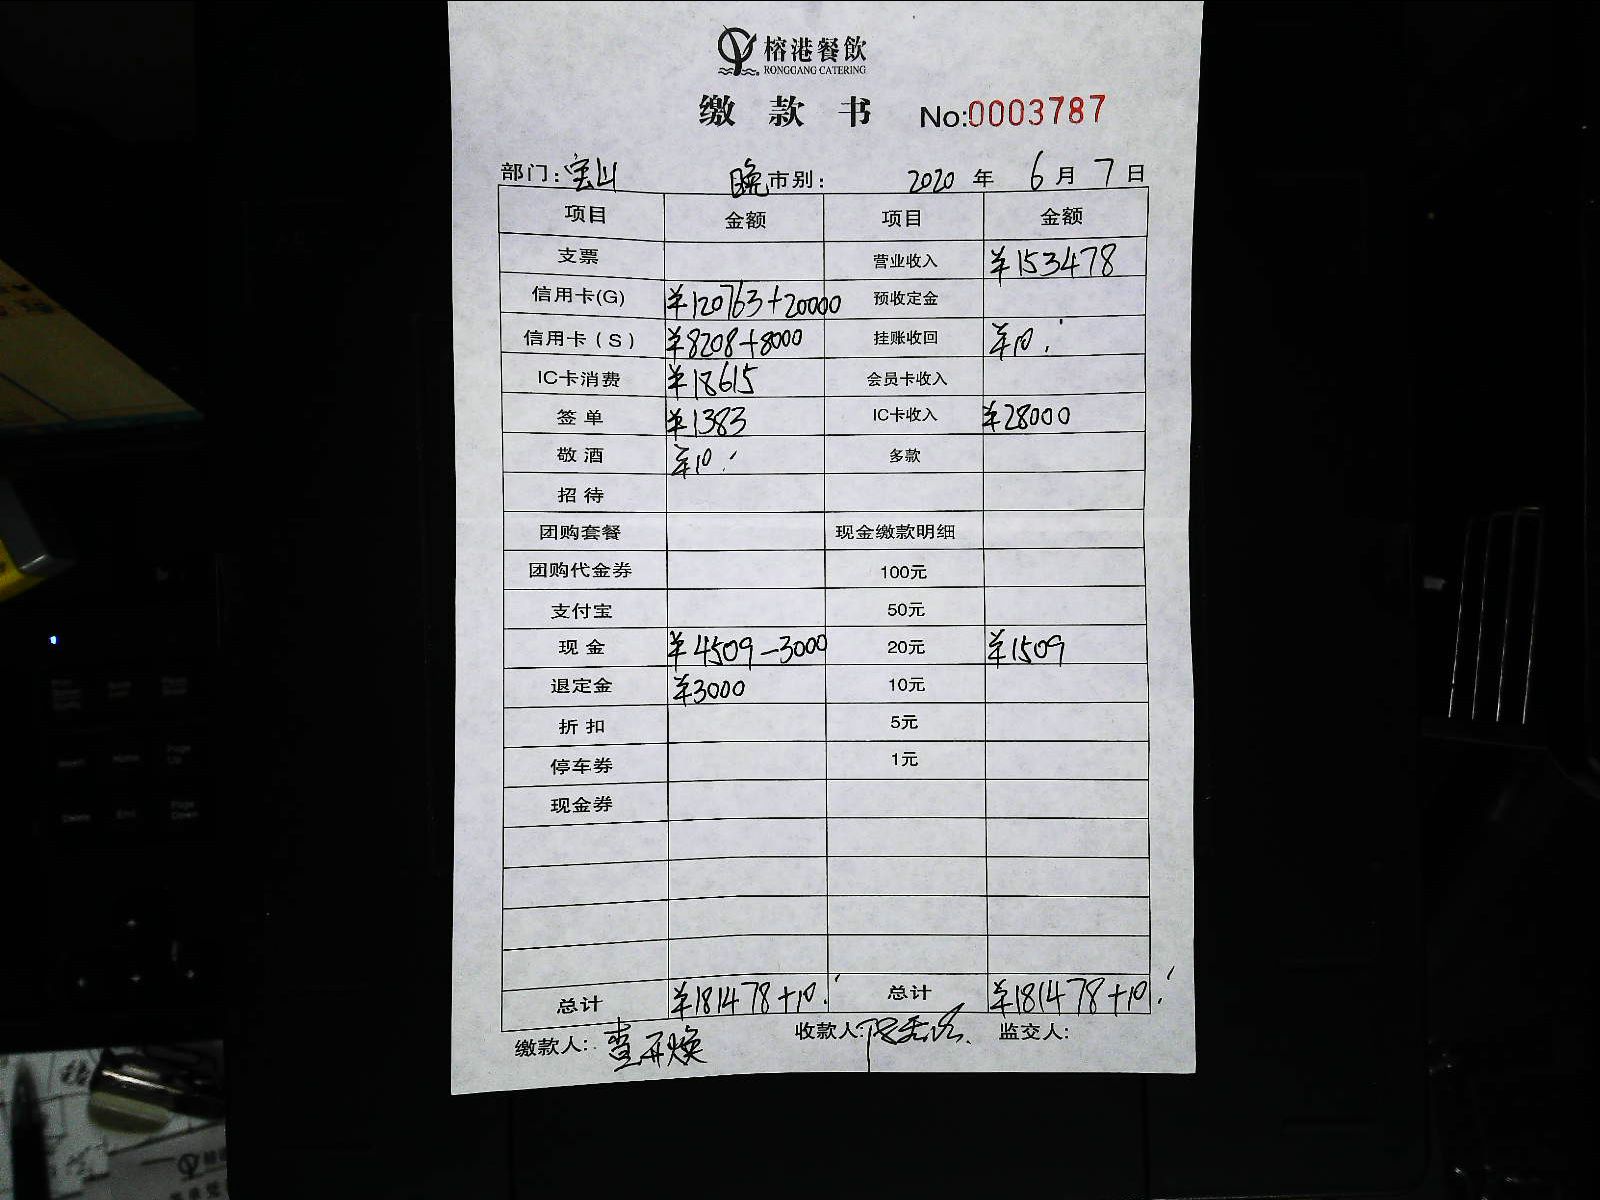 榕港餐飲
RONGGANG CATERING
缴款书 No:0003787
部门: 宝山 晚市别: 2020年6月7日
项目 金额 项目 金额
支票 营业收入 ¥153478
信用卡(G) ¥120763+20000 预收定金
信用卡(S) ¥8208+8000 挂账收回 ¥10.
IC卡消费 ¥18615 会员卡收入
签单 ¥1383 IC卡收入 ¥28000
敬酒 ¥10. 多款
招待
团购套餐 现金缴款明细
团购代金券 100元
支付宝 50元
现金 ¥4509-3000 20元 ¥1509
退定金 ¥3000 10元
折扣 5元
停车券 1元
现金券
总计 ¥181478+10. 总计 ¥181478+10.
缴款人: 收款人: 监交人: